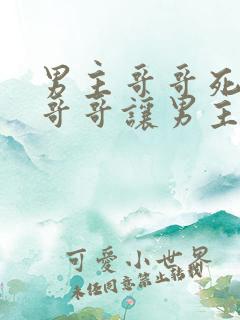 男主哥哥死
哥哥讓男主
可愛小世界
未經同意禁止轉載